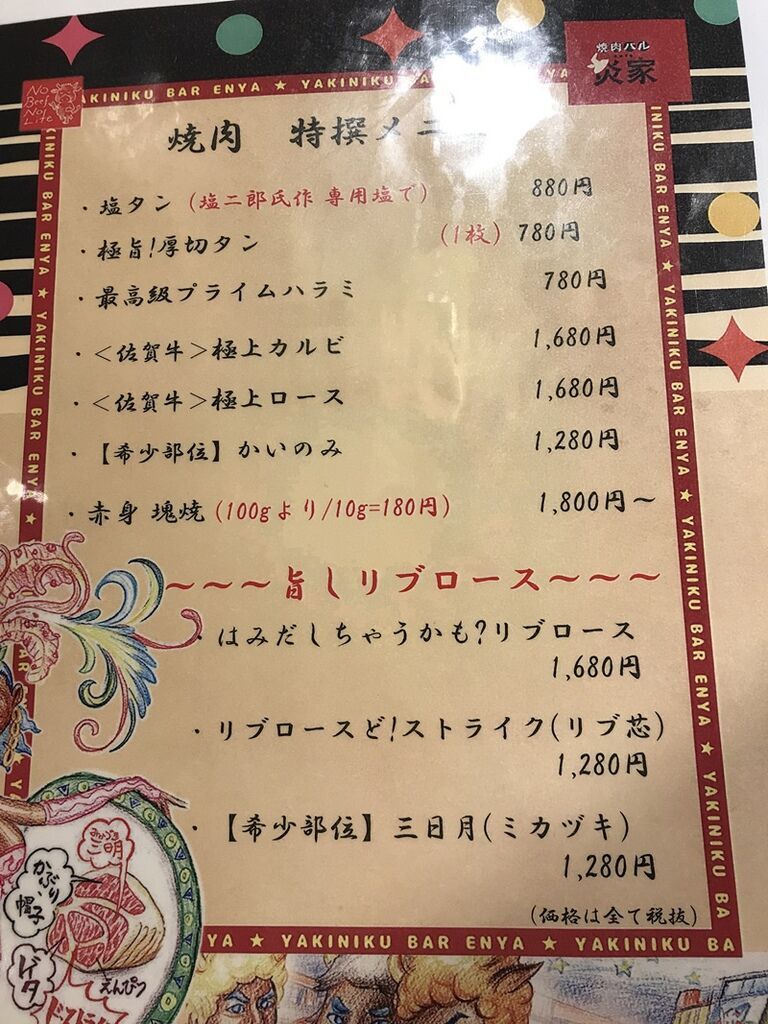 No Beef No Life
YAKINIKU BAR ENYA ★ YAKINIKU BAR ENYA
焼肉バル
炎家
焼肉 特撰メニ
・塩タン (塩二郎氏作 専用塩で) 880円
・極旨!厚切タン (1枚) 780円
・最高級プライムハラミ 780円
・<佐賀牛>極上カルビ 1,680円
・<佐賀牛>極上ロース 1,680円
・【希少部位】かいのみ 1,280円
・赤身 塊焼 (100gより/10g=180円) 1,800円～
～～～旨しリブロース～～～
・はみだしちゃうかも?リブロース
1,680円
・リブロースど!ストライク(リブ芯)
1,280円
・【希少部位】三日月(ミカヅキ)
1,280円
(価格は全て税抜)
かぶり
帽子
ゲタ
えんぴつ
YA ★ YAKINIKU BAR ENYA ★ YAKINIKU BA